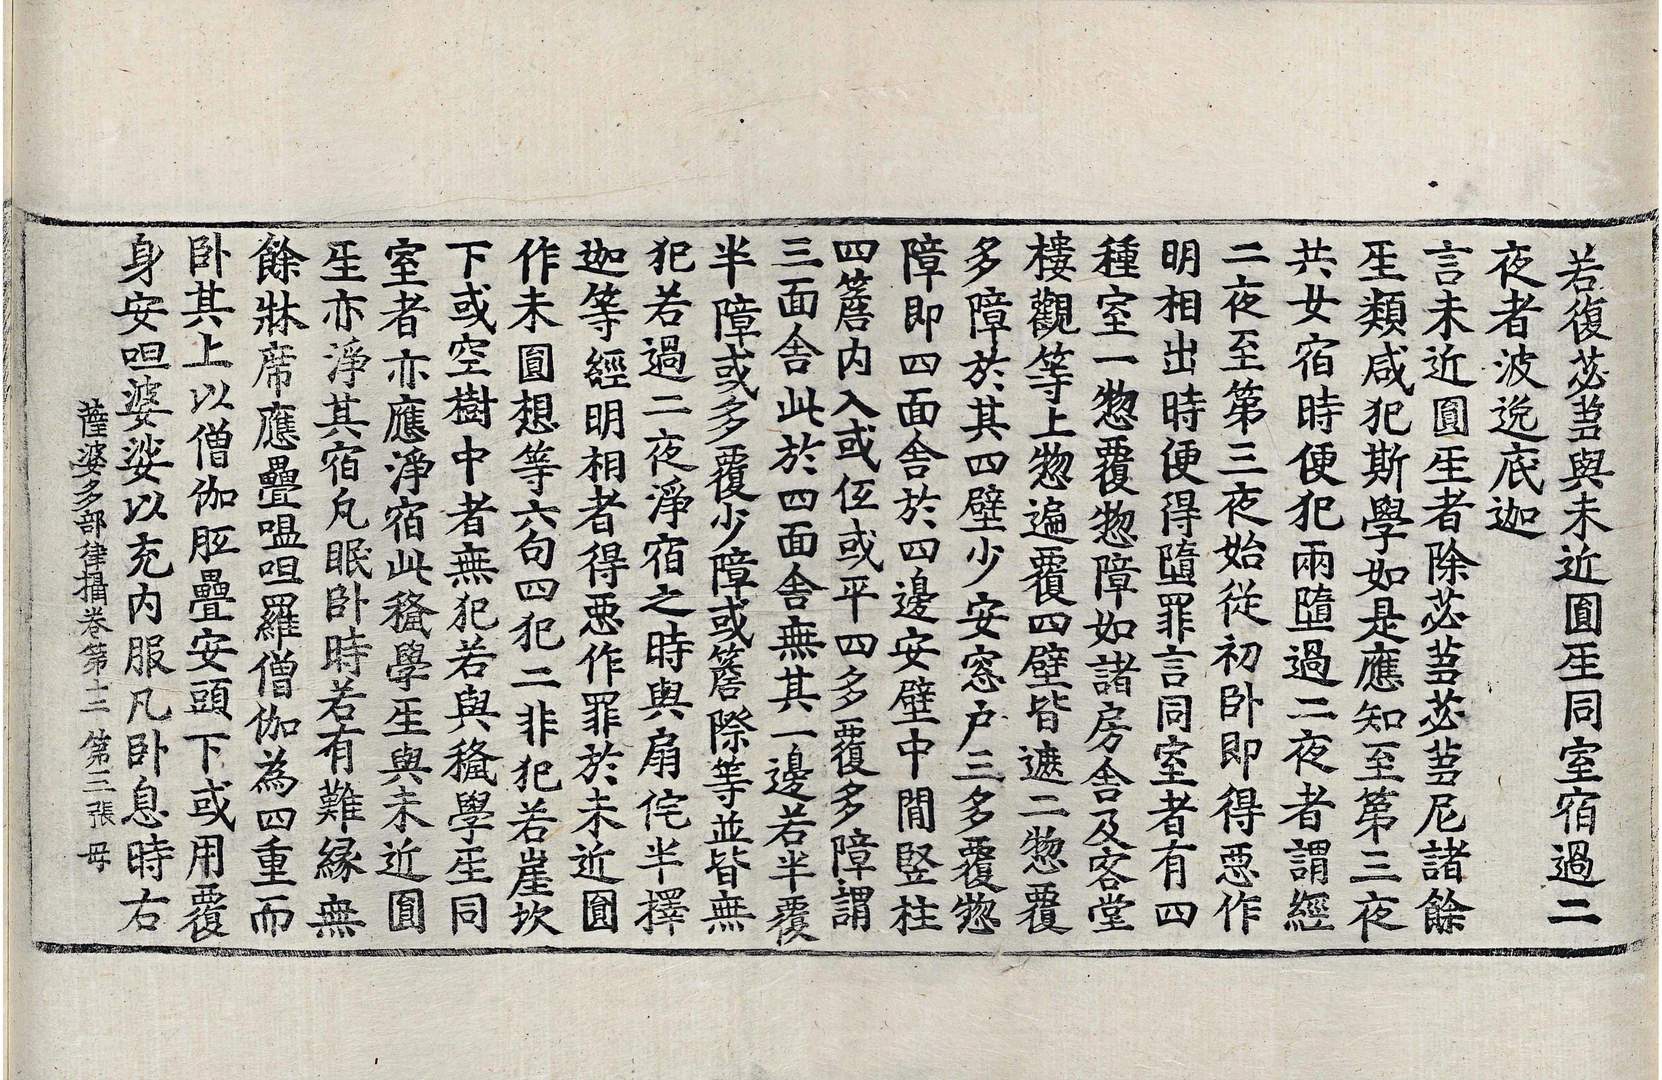 若復苾芻與未近圓人同室宿過二
夜者波逸底迦
言未近圓人者除苾芻苾芻尼諸餘
人類咸犯斯學如是應知至第三夜
共女宿時便犯兩墮過二夜者謂經
二夜至第三夜始從初卧即得惡作
明相出時便得墮罪言同室者有四
種室一惣覆惣障如諸房舎及客堂
樓觀等上惣遍覆四壁皆遮二惣覆
多障於其四壁少安窓戶三多覆惣
障即四面舎於四邊安壁中間竪柱
四簷内入或低或平四多覆多障謂
三面舎此於四面舎無其一邊若半覆
半障或多覆少障或簷際等並皆無
犯若過二夜淨宿之時與扇侘半擇
迦等經明相者得惡作罪於未近圓
作未圓想等六句四犯二非犯若崖坎
下或空樹中者無犯若與授學人同
室者亦應淨宿此授學人與未近圓
人亦淨其宿凡眠卧時若有難緣無
餘牀席應疊嗢呾羅僧伽為四重而
卧其上以僧伽胝疊安頭下或用覆
身安呾婆娑以充内服凡卧息時右
薩婆多部律攝卷第十二 第三張 毋